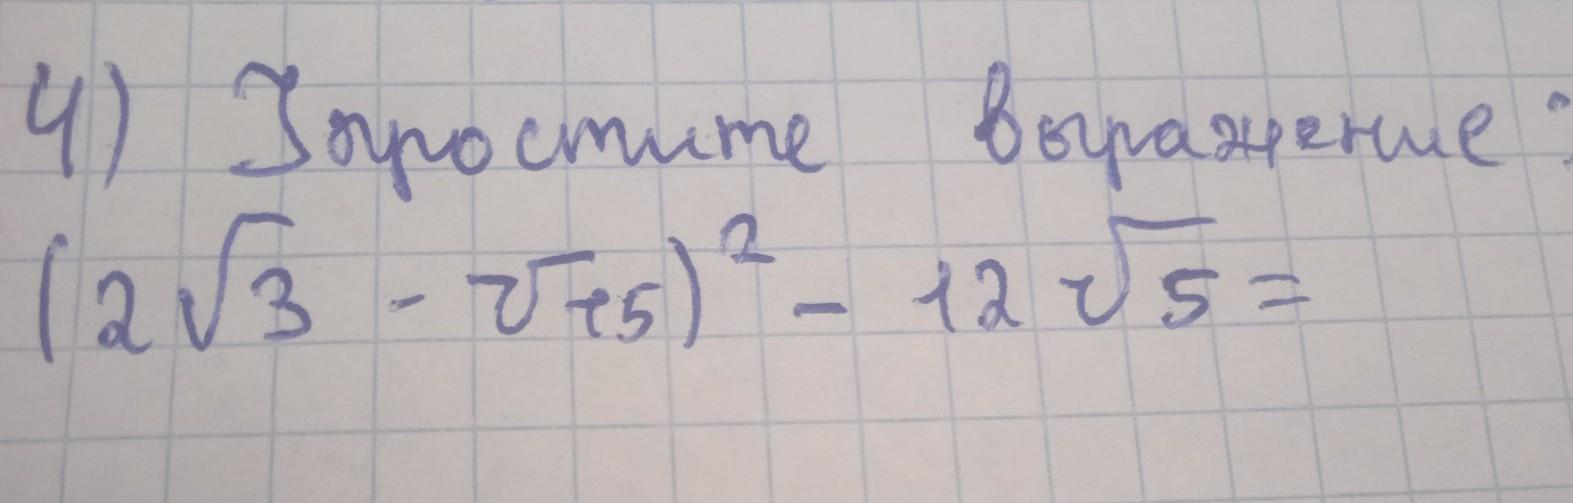 4) Упростите выражение:
(2√3 - √15)² - 12√5 =